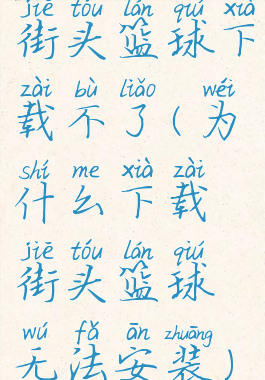 jiē tóu lán qiú xià
街头篮球下
zài bù liǎo wéi
载不了(为
shí me xià zài
什么下载
jiē tóu lán qiú
街头篮球
wú fǎ ān zhuāng
无法安装)